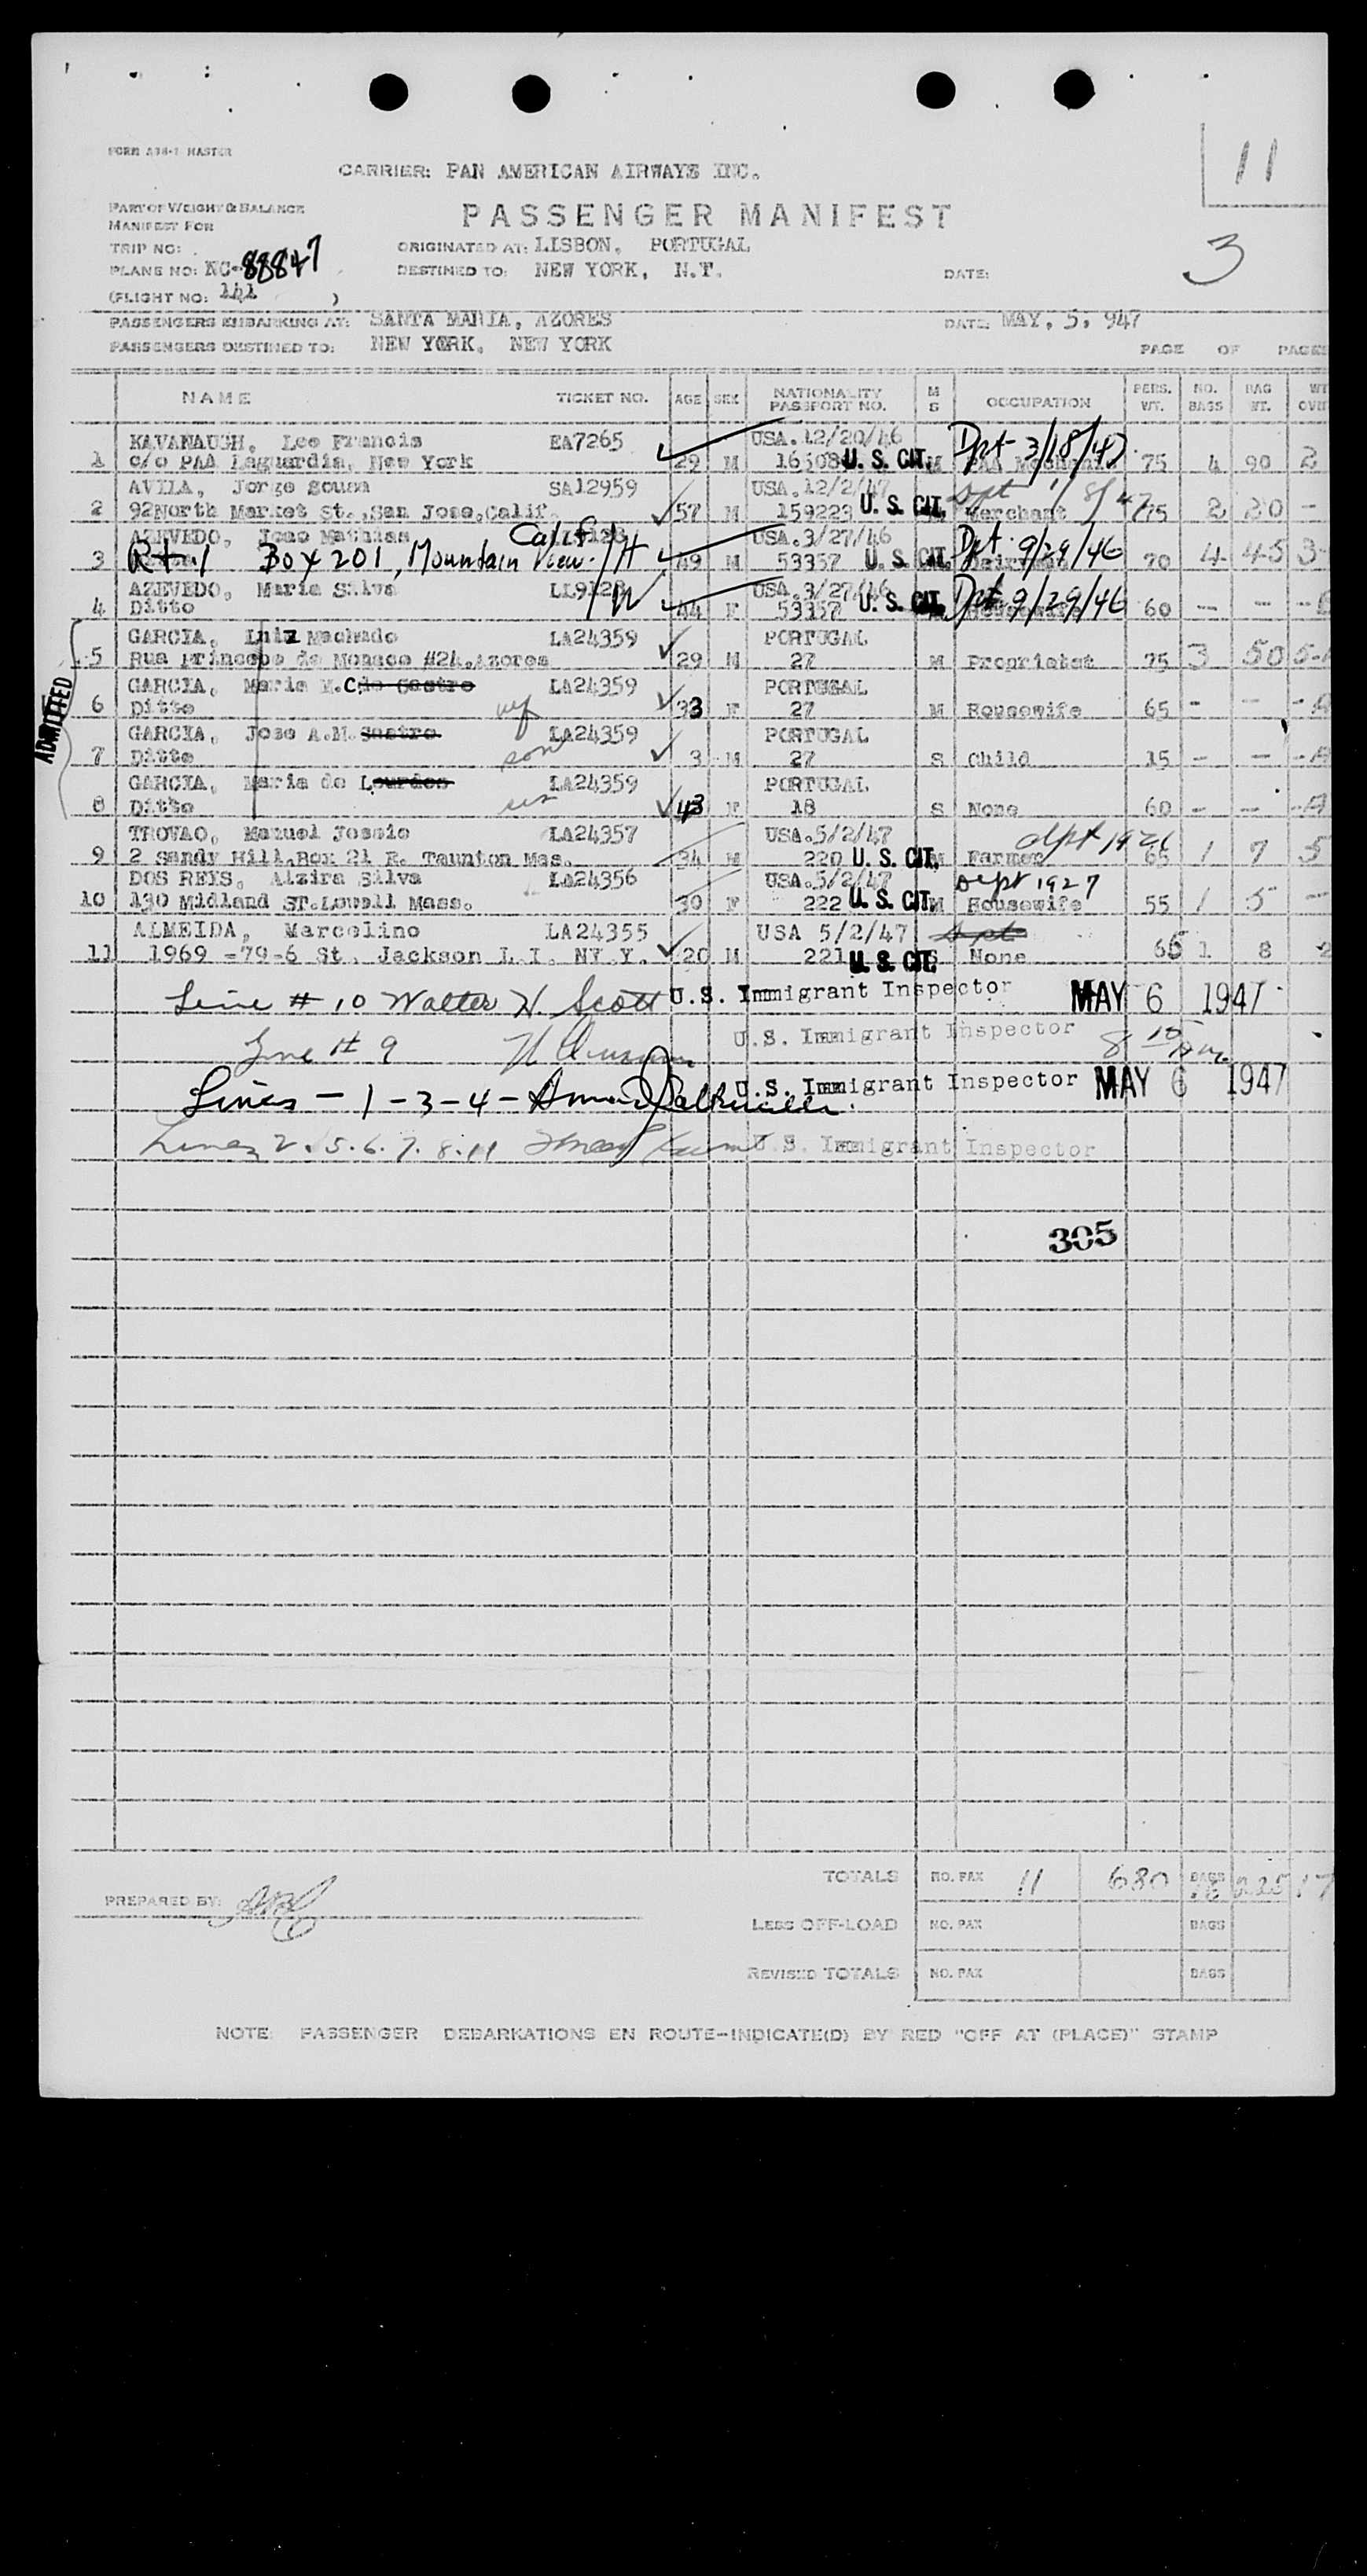 FORM A38-1 MASTER
11
CARRIER: PAN AMERICAN AIRWAYS INC.
PART OF WEIGHT & BALANCE
MANIFEST FOR
PASSENGER MANIFEST
TRIP NO:
ORIGINATED AT: LISBON, PORTUGAL
3
PLANE NO: NC-88847
DESTINED TO: NEW YORK, N.Y.
DATE:
(FLIGHT NO: 141 )
PASSENGERS EMBARKING AT: SANTA MARIA, AZORES
DATE: MAY, 5, 947
PASSENGERS DESTINED TO: NEW YORK, NEW YORK
PAGE OF PAGES
NAME TICKET NO. AGE SEX NATIONALITY PASSPORT NO. M S OCCUPATION PERS. WT. NO. BAGS BAG WT.
KAVANAUGH, Lee Francis EA7265 USA.12/20/46 Dpt 3/18/47
1 c/o PAA Laguardia, New York 29 M U. S. CIT. M 75 4 90 2
AVILA, Jorge Souza SA12959 USA.12/2/47 dpt 1/8/47
2 92North Market St.,San Jose,Calif. 57 M 159223 U. S. CIT. Merchant 75 2 20 -
AZEVEDO, Joao Mathias Calif USA.3/27/46 Dpt. 9/29/46
3 Rt 1 Box 201, Mountain View. H 49 M 53357 U. S. CIT. 70 4 45 3
AZEVEDO, Maria Silva LL9128 W USA.3/27/46 Dpt 9/29/46
4 Ditto 44 F 53357 U. S. CIT. 60 - - -
ADMITTED
GARCIA, Luiz Machado LA24359 PORTUGAL
5 Rua Princepe de Monaco #24.Azores 29 M 27 M Proprietat 75 3 50 5
GARCIA, Maria M.C.de Castro LA24359 PORTUGAL
6 Ditto wf 33 F 27 M Housewife 65 - - -
GARCIA, Jose A.M. Castro LA24359 PORTUGAL
7 Ditto son 3 M 27 S Child 15 - - -
GARCIA, Maria de Lourdes LA24359 PORTUGAL
8 Ditto sis 43 F 18 S None 60 - - -
TROVAO, Manuel Jossio LA24357 USA.5/2/47 dpt 1921
9 2 Sandy Hill.Box 21 E. Taunton Mas. 34 M 220 U. S. CIT. M Farmer 65 1 7 5
DOS REIS, Alzira Silva LA24356 USA.5/2/47 Dept 1927
10 130 Midland ST.Lowell Mass. 39 F 222 U. S. CIT. M Housewife 55 1 5 -
ALMEIDA, Marcelino LA24355 USA 5/2/47 dpt
11 1969 -79-6 St. Jackson L.I. NY Y. 20 M 221 U. S. CIT. S None 65 1 8 2
Line # 10 Walter H. Scott U.S. Immigrant Inspector MAY 6 1947
Line # 9 U.S. Immigrant Inspector 8 15 Am.
Lines - 1 - 3 - 4 - U.S. Immigrant Inspector MAY 6 1947
Lines 2. 5. 6. 7. 8. 11 U.S. Immigrant Inspector
305
TOTALS NO. PAX 11 680 BAGS 16 225 17
PREPARED BY:
LESS OFF-LOAD NO. PAX BAGS
REVISED TOTALS NO. PAX BAGS
NOTE: PASSENGER DEBARKATIONS EN ROUTE-INDICATE(D) BY RED "OFF AT (PLACE)" STAMP